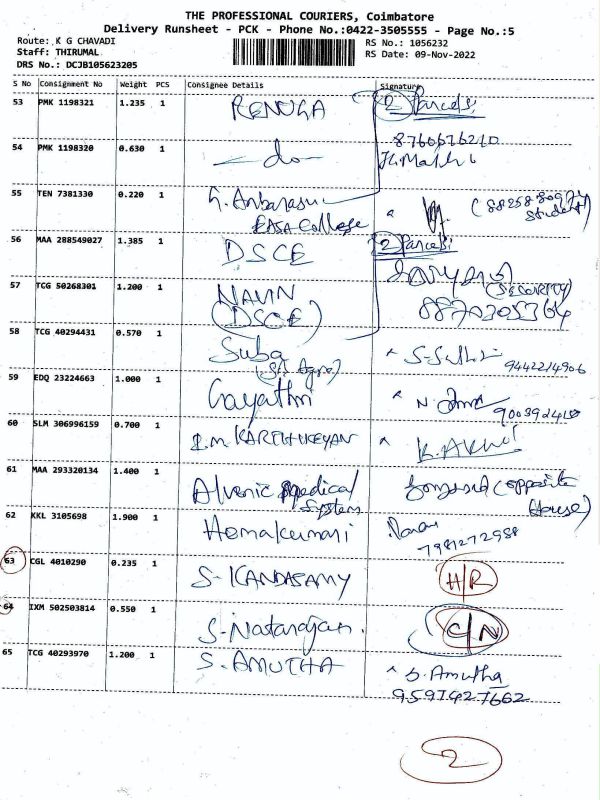 THE PROFESSIONAL COURIERS, Coimbatore
Delivery Runsheet - PCK - Phone No.:0422-3505555 - Page No.:5
Route: K G CHAVADI
RS No.: 1056232
Staff: THIRUMAL
RS Date: 09-Nov-2022
DRS No.: DCJB105623205
S No Consignment No Weight PCS Consignee Details Signature
53 PMK 1198321 1.235 1 RENUGA 2 Parcels
8760676210
54 PMK 1198320 0.630 1 do
55 TEN 7381330 0.220 1 G. Anbarasu
EASA College
Student)
56 MAA 288549027 1.385 1 DSCE 2 Parcels
57 TCG 50268301 1.200 1 NAVIN (SECURITY)
(DSCE) 8870305364
58 TCG 40294431 0.570 1 Suba
9442214906
59 EDQ 23224663 1.000 1 Gayathri
60 SLM 306996159 0.700 1 R.M. KARTHIKEYAN
61 MAA 293320134 1.400 1 Alvenic Medical (opposite
System House)
62 KKL 3105698 1.900 1 Hemakumari
7981272988
63 CGL 4010290 0.235 1 S. KANDASAMY H/R
64 IXM 502503814 0.550 1 S. Natarajan. C/N
65 TCG 40293970 1.200 1 S. AMUTHA S. Amutha
9597427662
2